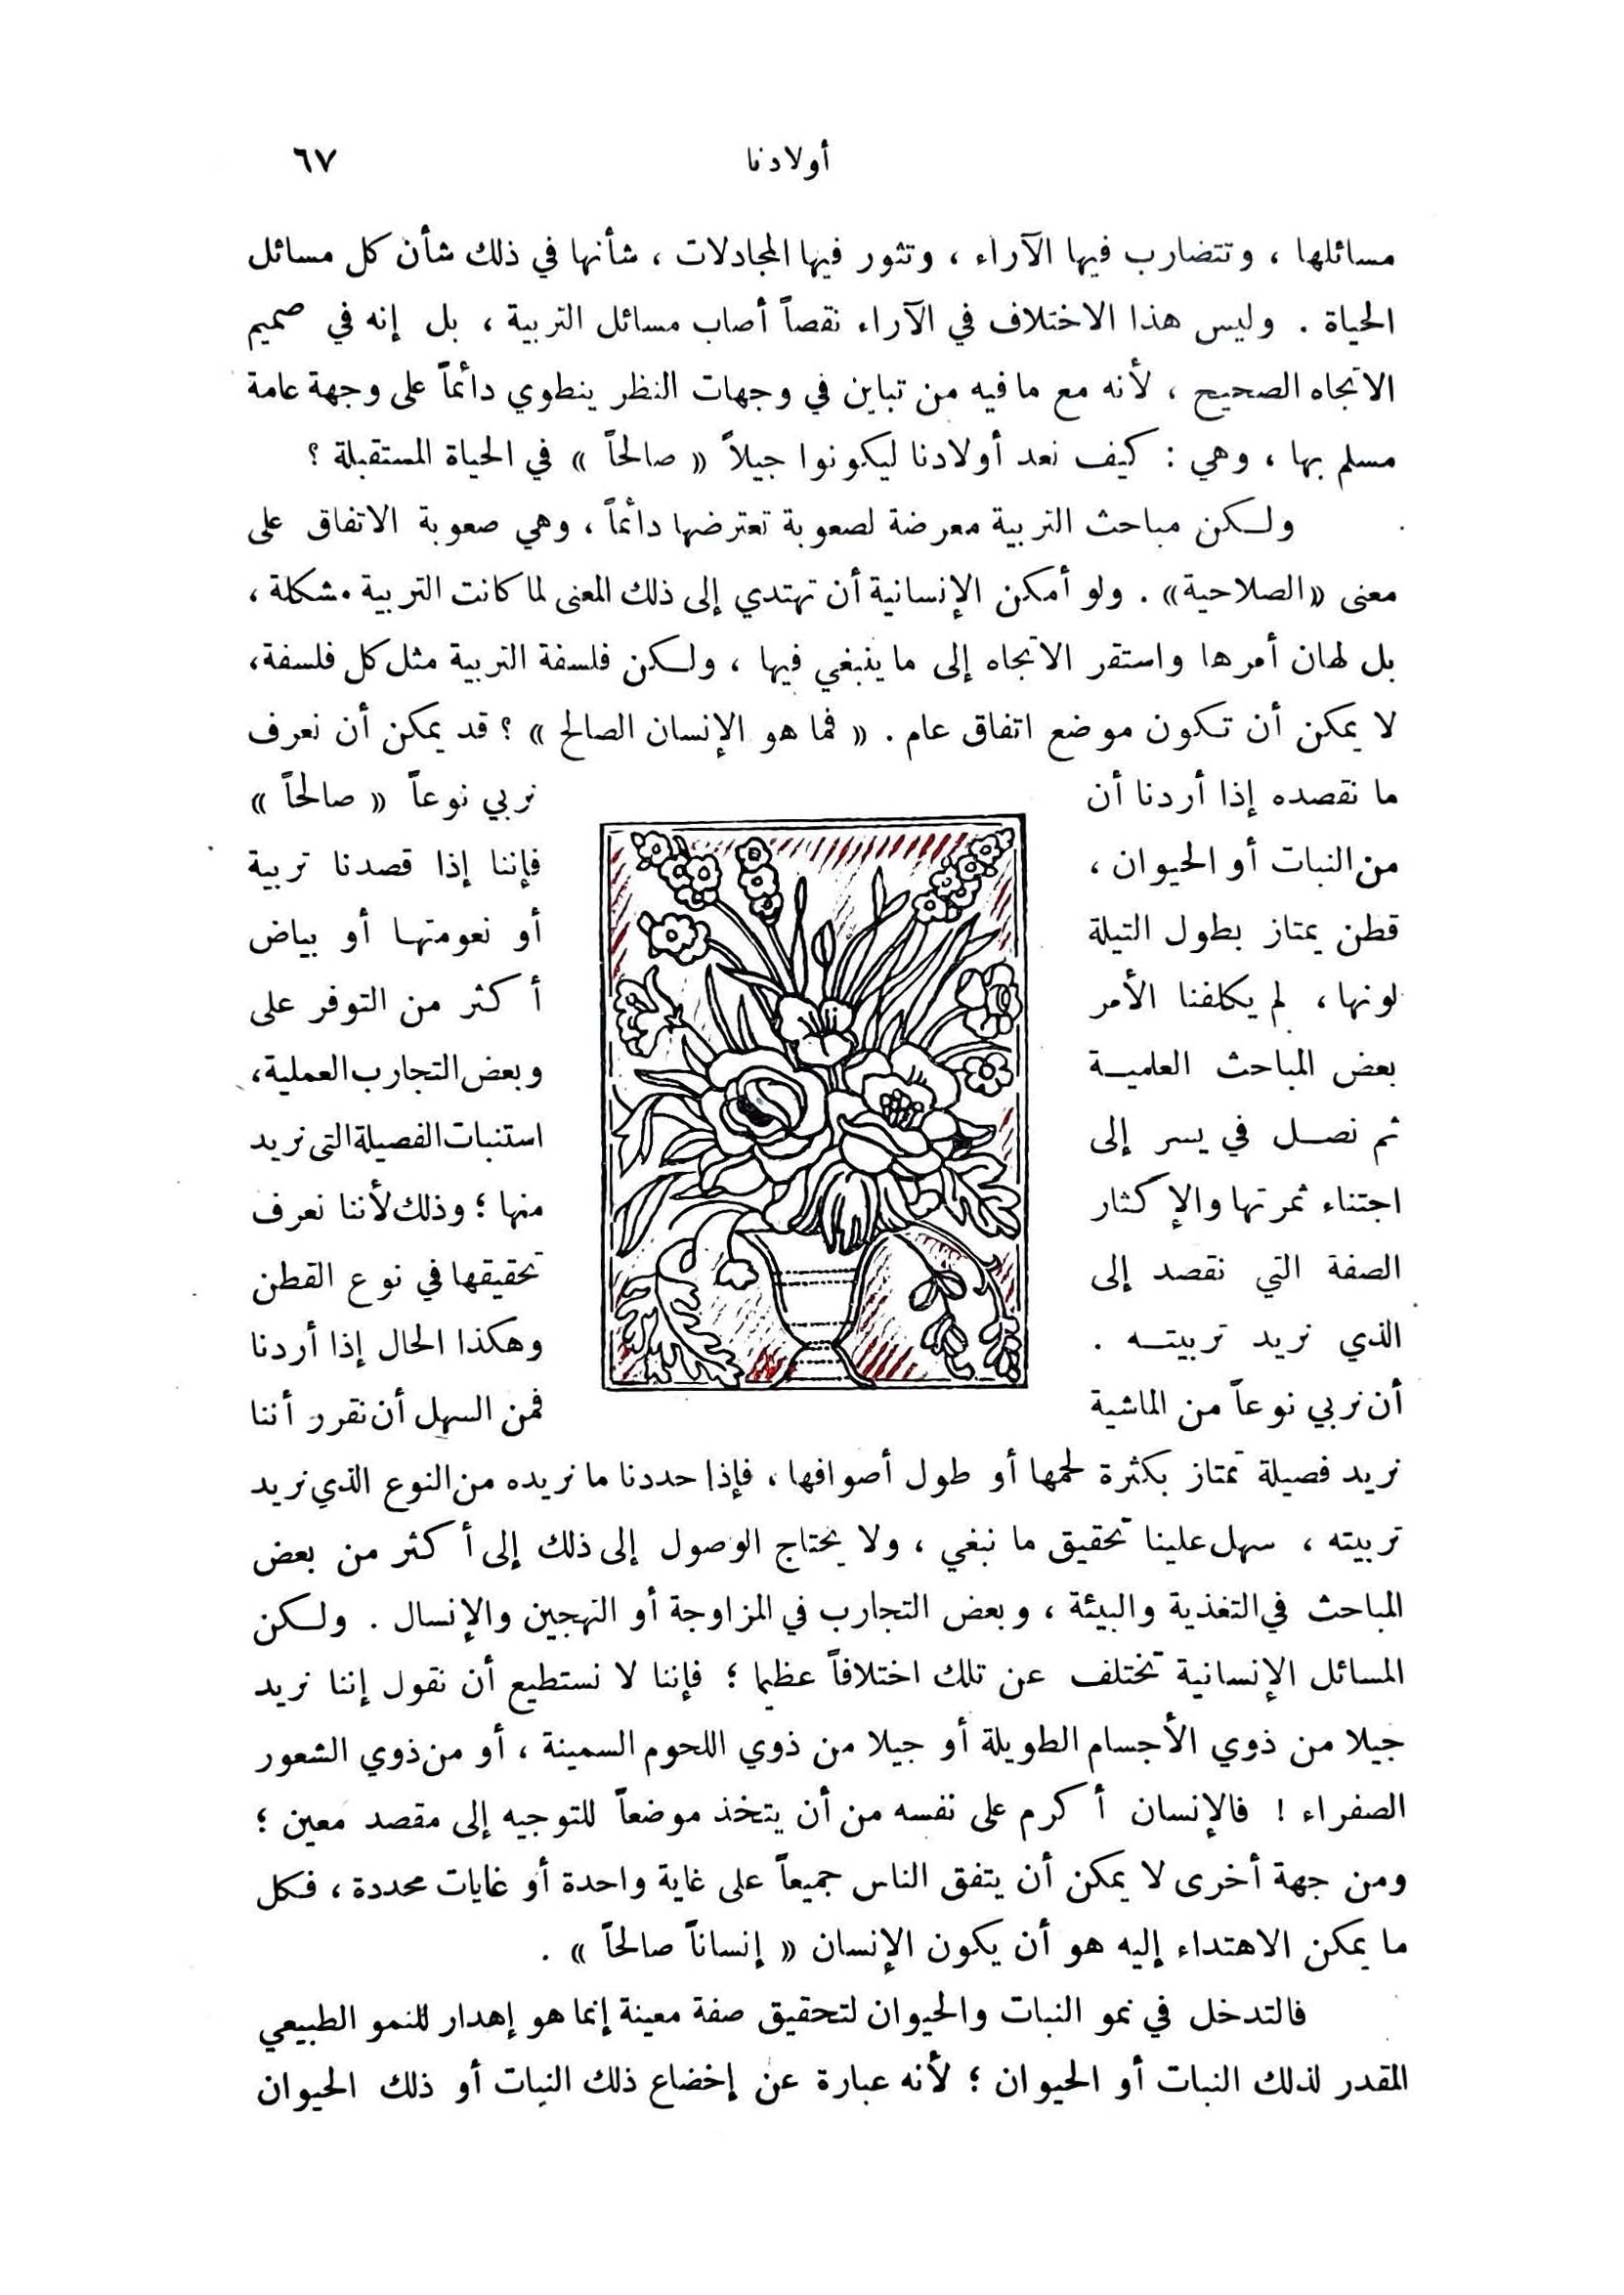 أولادنا ٦٧
مسائلها ، وتتضارب فيها الآراء ، وتثور فيها المجادلات ، شأنها في ذلك شأن كل مسائل
الحياة . وليس هذا الاختلاف في الآراء نقصاً أصاب مسائل التربية ، بل إنه في صميم
الاتجاه الصحيح ، لأنه مع ما فيه من تباين في وجهات النظر ينطوي دائماً على وجهة عامة
مسلم بها ، وهي : كيف نعد أولادنا ليكونوا جيلاً « صالحاً » في الحياة المستقبلة ؟
ولكن مباحث التربية معرضة لصعوبة تعترضها دائماً ، وهي صعوبة الاتفاق على
معنى «الصلاحية» . ولو أمكن الإنسانية أن تهتدي إلى ذلك المعنى لما كانت التربية مشكلة ،
بل لهان أمرها واستقر الاتجاه إلى ما ينبغي فيها ، ولكن فلسفة التربية مثل كل فلسفة،
لا يمكن أن تكون موضع اتفاق عام . « فما هو الإنسان الصالح » ؟ قد يمكن أن نعرف
ما نقصده إذا أردنا أن نربي نوعاً « صالحاً »
من النبات أو الحيوان ، فإننا إذا قصدنا تربية
قطن يمتاز بطول التيلة أو نعومتها أو بياض
لونها ، لم يكلفنا الأمر أكثر من التوفر على
بعض المباحث العلمية وبعض التجارب العملية،
ثم نصل في يسر إلى استنبات الفصيلة التى نريد
اجتناء ثمرتها والإكثار منها ؛ وذلك لأننا نعرف
الصفة التي نقصد إلى تحقيقها في نوع القطن
الذي نريد تربيته . وهكذا الحال إذا أردنا
أن نربي نوعاً من الماشية فمن السهل أن نقرر أننا
نريد فصيلة تمتاز بكثرة لحمها أو طول أصوافها ، فإذا حددنا ما نريده من النوع الذي نريد
تربيته ، سهل علينا تحقيق ما نبغي ، ولا يحتاج الوصول إلى ذلك إلى أكثر من بعض
المباحث في التغذية والبيئة ، وبعض التجارب في المزاوجة أو التهجين والإنسال . ولكن
المسائل الإنسانية تختلف عن تلك اختلافاً عظيما ؛ فإننا لا نستطيع أن نقول إننا نريد
جيلا من ذوي الأجسام الطويلة أو جيلا من ذوي اللحوم السمينة ، أو من ذوي الشعور
الصفراء ! فالإنسان أكرم على نفسه من أن يتخذ موضعاً للتوجيه إلى مقصد معين ؛
ومن جهة أخرى لا يمكن أن يتفق الناس جميعاً على غاية واحدة أو غايات محددة ، فكل
ما يمكن الاهتداء إليه هو أن يكون الإنسان « إنساناً صالحاً » .
فالتدخل في نمو النبات والحيوان لتحقيق صفة معينة إنما هو إهدار للنمو الطبيعي
المقدر لذلك النبات أو الحيوان ؛ لأنه عبارة عن إخضاع ذلك النبات أو ذلك الحيوان